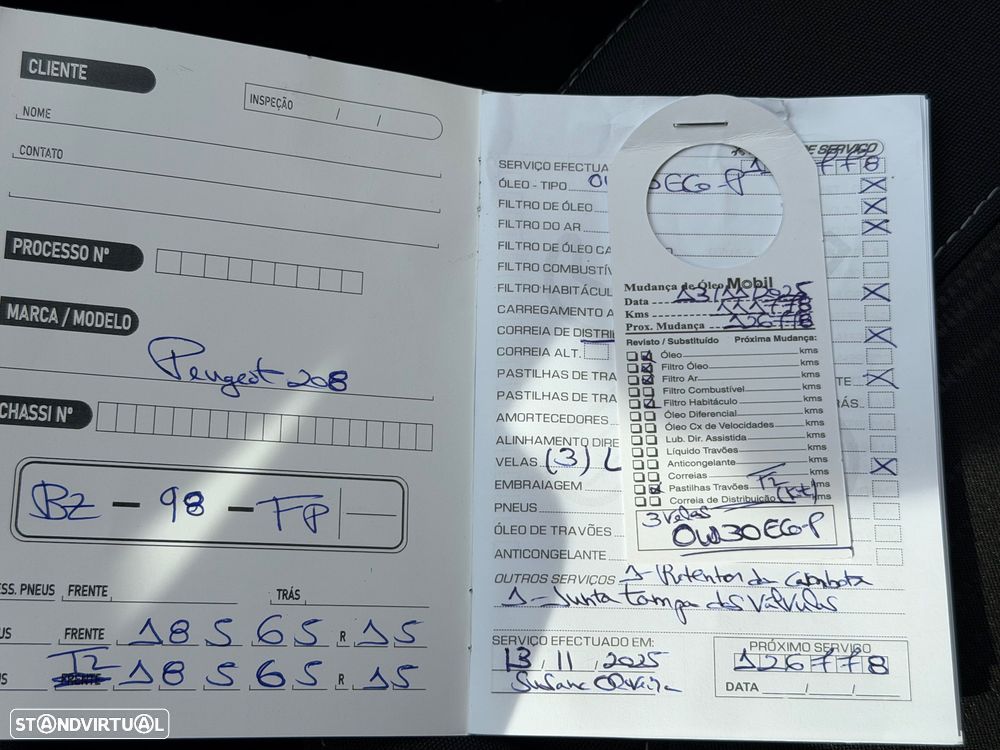 CLIENTE
INSPEÇÃO / /
NOME
CONTATO
PROCESSO Nº
MARCA / MODELO
Peugeot 208
CHASSI Nº
BZ - 98 - FP
ESS. PNEUS FRENTE TRÁS
US FRENTE 185 65 R 15
S T2 185 65 R 15
DE SERVIÇO
SERVIÇO EFECTUA 778
ÓLEO - TIPO 0W30EGO-P
FILTRO DE ÓLEO
FILTRO DO AR
FILTRO DE ÓLEO CA
FILTRO COMBUSTÍV
FILTRO HABITÁCUL
CARREGAMENTO A
CORREIA DE DISTRI
CORREIA ALT.
PASTILHAS DE TRA TE
PASTILHAS DE TRA RÁS
AMORTECEDORES
ALINHAMENTO DIRE
VELAS (3)
EMBRAIAGEM
PNEUS
ÓLEO DE TRAVÕES
ANTICONGELANTE
OUTROS SERVIÇOS 1- Retentor da Cambota
1- Junta tampa das Válvulas
SERVIÇO EFECTUADO EM:
13 / 11 / 2025
Susana Oliveira
PRÓXIMO SERVIÇO
126778
DATA / /
Mudança de Óleo Mobil
Data 13/11/2025
Kms 111778
Prox. Mudança 126778
Revisto / Substituído Próxima Mudança:
Óleo kms
Filtro Óleo kms
Filtro Ar kms
Filtro Combustível kms
Filtro Habitáculo kms
Óleo Diferencial kms
Óleo Cx de Velocidades kms
Lub. Dir. Assistida kms
Líquido Travões kms
Anticongelante kms
Correias kms
Pastilhas Travões T2 kms
Correia de Distribuição (Kit) kms
3 velas
0W30EGO-P
STANDVIRTUAL